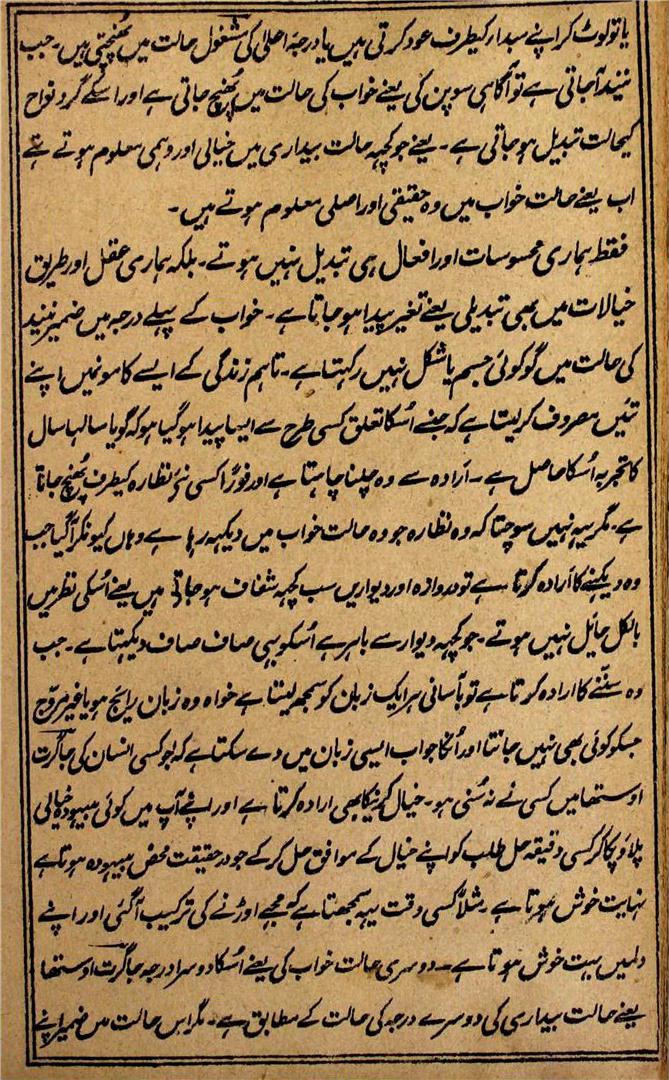 یا تو لوٹ کر اپنے مبداء کیطرف عود کرتی ہیں یا درجہ اعلیٰ کی مشغول حالت میں پُھنچتی ہیں۔ جب
نیند آجاتی ہے تو آگاہی سوپن کی یعنے خواب کی حالت میں پُھنچ جاتی ہے اور اسکے گرد نواح
کیحالت تبدیل ہو جاتی ہے۔ یعنے جو کچہہ حالت بیداری میں خیالی اور وہمی معلوم ہوتے تہے
اب یعنے حالت خواب میں وہ حقیقی اور اصلی معلوم ہوتے ہیں۔
فقط ہماری محسوسات اور افعال ہی تبدیل نہیں ہوتے۔ بلکہ ہماری عقل اور طریق
خیالات میں بھی تبدیلی یعنے تغیر پیدا ہو جاتا ہے۔ خواب کے پہلے درجہ میں ضمیر نیند
کی حالت میں گو کوئی جسم یا شکل نہیں رکہتا ہے۔ تاہم زندگی کے ایسے کامونمیں اپنے
تئیں مصروف کر لیتا ہے کہ جنسے اُسکا تعلق کسی طرح سے ایسا پیدا ہو گیا ہو کہ گویا سالہا سال
کا تجربہ اُسکا حاصل ہے۔ ارادہ سے وہ چلنا چاہتا ہے اور فوراً کسی نئے نظارہ کیطرف پُھنچ جاتا
ہے۔ مگر یہہ نہیں سوچتا کہ وہ نظارہ جو وہ حالت خواب میں دیکہہ رہا ہے وہاں کیونکر آگیا جب
وہ دیکہنے کا ارادہ کرتا ہے تو دروازہ اور دیواریں سب کچہہ شفاف ہو جاتی ہیں یعنے اُسکی نظر میں
بالکل حایل نہیں ہوتے۔ جو کچہہ دیوار سے باہر ہے اُسکو بہی صاف صاف دیکہتا ہے۔ جب
وہ سننے کا ارادہ کرتا ہے تو بآسانی ہر ایک زبان کو سمجھ لیتا ہے خواہ وہ زبان رایج ہو یا غیر مروّج
جسکو کوئی بھی نہیں جانتا اور اُنکا جواب ایسی زبان میں دے سکتا ہے کہ جو کسی انسان کی جاگرت
اوستھا میں کسی نے نہ سُنی ہو۔ خیال کرنیکا بھی ارادہ کرتا ہے اور اپنے آپ میں کوئی بیہودہ خیالی
پلاؤ پکا کر کسی دقیقہ حل طلب کو اپنے خیال کے موافق حل کر کے جو درحقیقت محض بیہودہ ہوتا ہے
نہایت خوش ہوتا ہے۔ مثلاً کسی وقت یہہ سمجھتا ہے کہ مجہے اوڑنے کی ترکیب آگئی اور اپنے
دلمیں بہت خوش ہوتا ہے۔ دوسری حالت خواب کی یعنے اُسکا دوسرا درجہ جاگرت اوستھا
یعنے حالت بیداری کی دوسرے درجہ کی حالت کے مطابق ہے۔ مگر اس حالت میں ضمیر اپنے